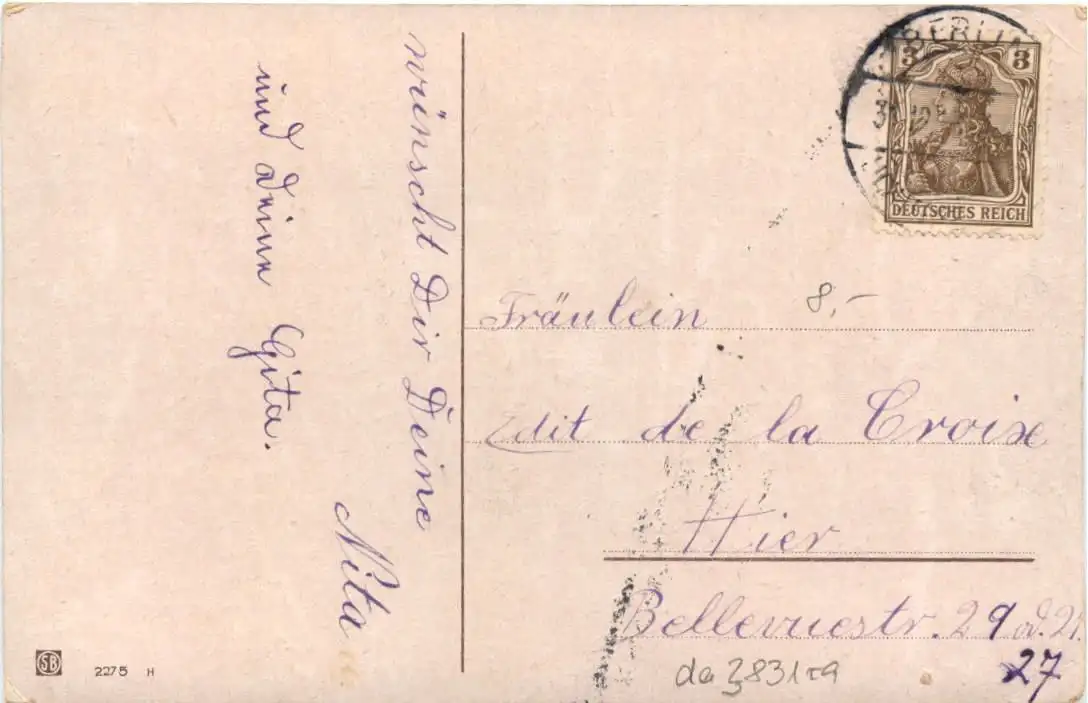 wünscht Dir Deine
Nita
und Deine Gita.
BERLIN
3 3
DEUTSCHES REICH
8,-
Fräulein
Edit de la Croix
Hier
Bellevuestr. 29 od. 21.
27
SB 2275 H